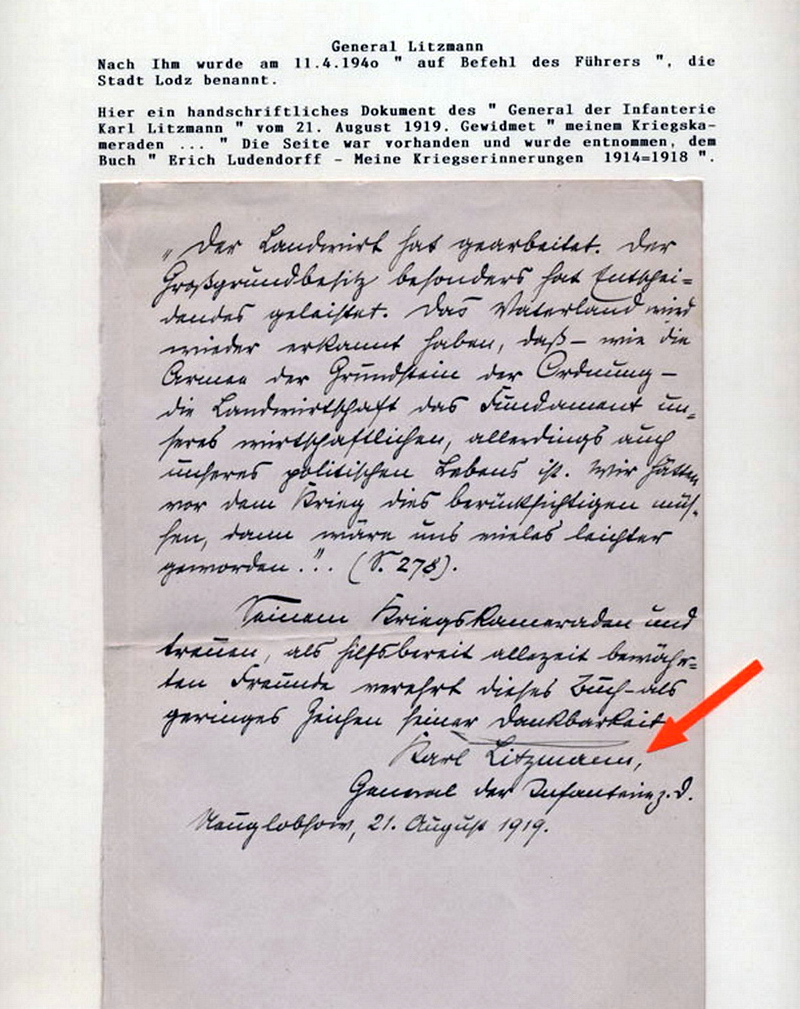 General Litzmann
Nach Ihm wurde am 11.4.194o " auf Befehl des Führers ", die
Stadt Lodz benannt.
Hier ein handschriftliches Dokument des " General der Infanterie
Karl Litzmann " vom 21. August 1919. Gewidmet " meinem Kriegska-
meraden ... " Die Seite war vorhanden und wurde entnommen, dem
Buch " Erich Ludendorff - Meine Kriegserinnerungen 1914=1918 ".
„Der Landwirt hat gearbeitet. Der
Großgrundbesitz besonders hat Entschei=
dendes geleistet. Das Vaterland wird
wieder erkannt haben, daß – wie die
Armee der Grundstein der Ordnung –
die Landwirtschaft das Fundament un=
seres wirtschaftlichen, allerdings auch
unseres politischen Lebens ist. Wir hätten
vor dem Krieg dies berücksichtigen müs-
sen, dann wäre uns vieles leichter
geworden.". (S. 278).
Seinem Kriegskameraden und
treuen, als hilfsbereit allezeit bewähr=
ten Freunde verehrt dieses Buch als
geringes Zeichen seiner Dankbarkeit
Karl Litzmann,
General der Infanterie z. D.
Neuglobsow, 21. August 1919.